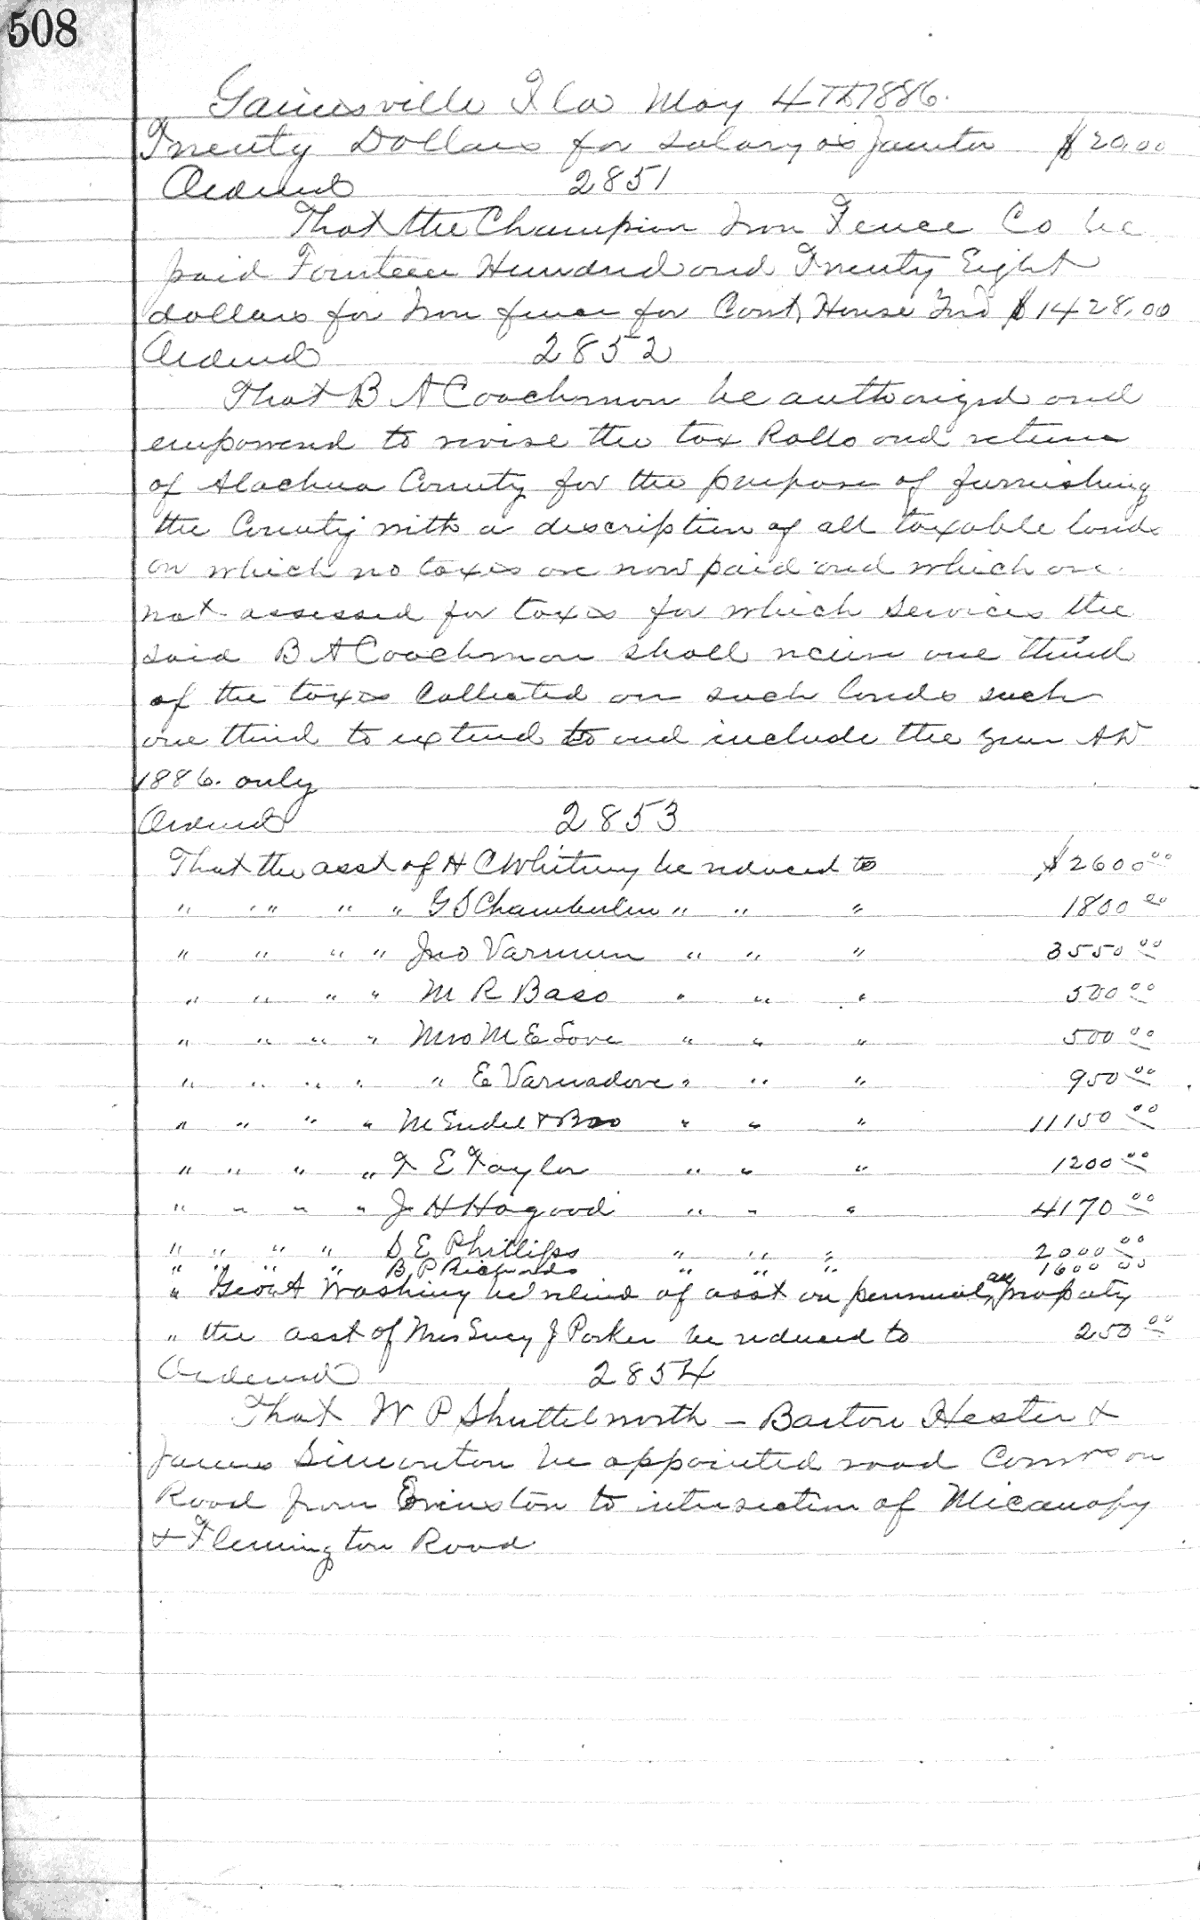 508
Gainesville Fla May 4TH 1886.
Twenty Dollars for salary as Janitor $20.00
Ordered 2851
That the Champion Iron Fence Co be
paid Fourteen Hundred and Twenty Eight
dollars for Iron fence for Court House $1428.00
Ordered 2852
That B A Coachman be authorized and
empowered to revise the tax Rolls and return
of Alachua County for the purpose of furnishing
the County with a description of all taxable lands
on which no taxes are now paid and which are
not assessed for taxes for which services the
said B A Coachman shall receive one third
of the taxes Collected on such lands such
one third to extend to and include the year AD
1886. only
Ordered 2853
That the asst of H C Whitney be reduced to $2600 00
" " " " G S Chamberlin " " " 1800 00
" " " " Jno Varnum " " " 3550 00
" " " " M R Bass " " " 500 00
" " " " Mrs M E Love " " " 500 00
" " " " " E Varnadore " " " 950 00
" " " " M Endel & Bro " " " 11150 00
" " " " F E Taylor " " " 1200 00
" " " " J H Hagood " " " 4170 00
" " " " S E Phillips " " " 2000 00
" " " " B P Richards " " " 1600 00
" Geo A Washing be relievd of asst on personal property
" the asst of Mrs Lucy J Parker be reduced to 250 00
Ordered 2854
That W P Shuttelworth - Barton Hester &
James Simonton be appointed road Comrs on
Road from Evinston to intersection of Micanopy
& Flemington Road